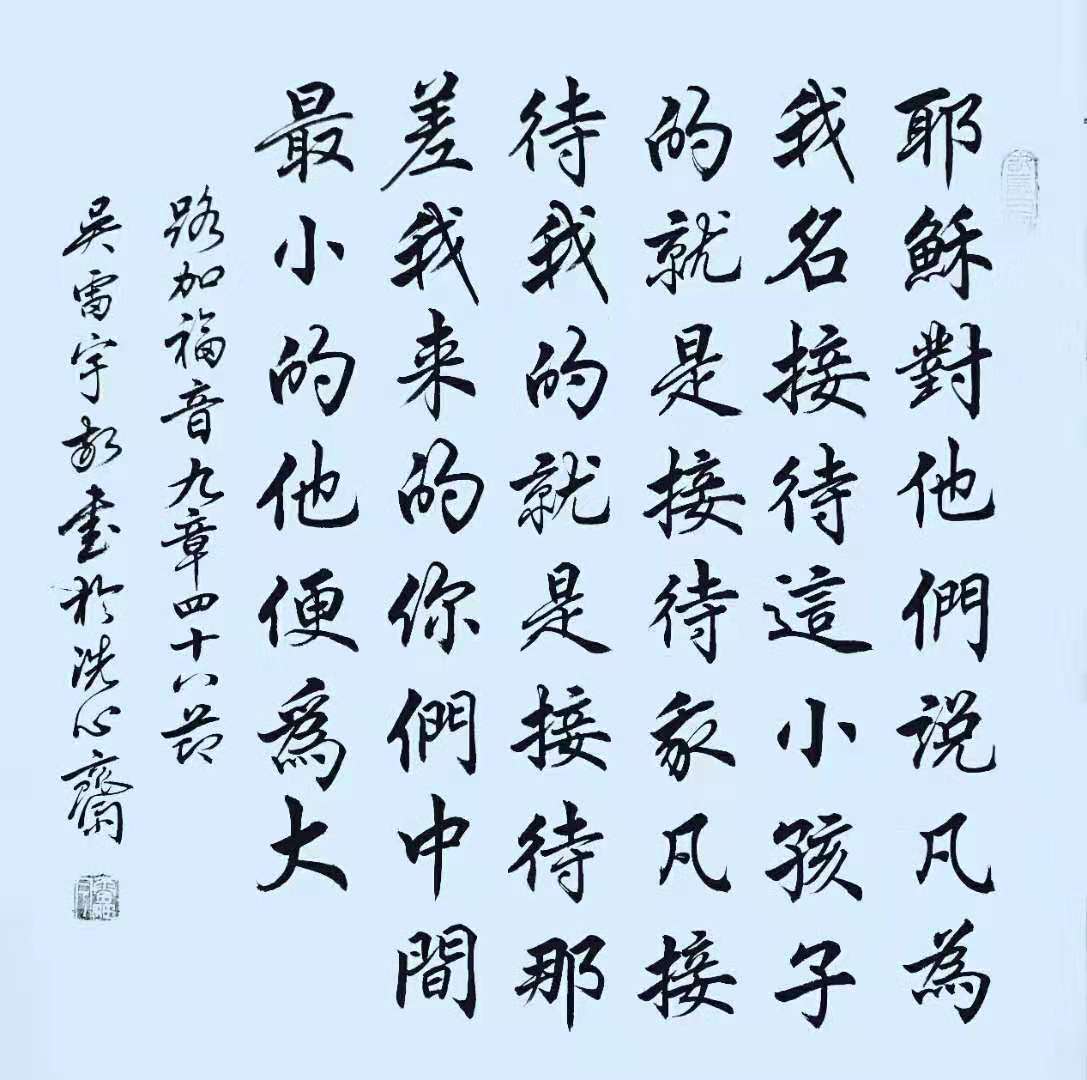 耶穌對他們说凡為
我名接待這小孩子
的就是接待我凡接
待我的就是接待那
差我来的你們中間
最小的他便為大
路加福音九章四十八節
吳雷宇敬書於洗心齋